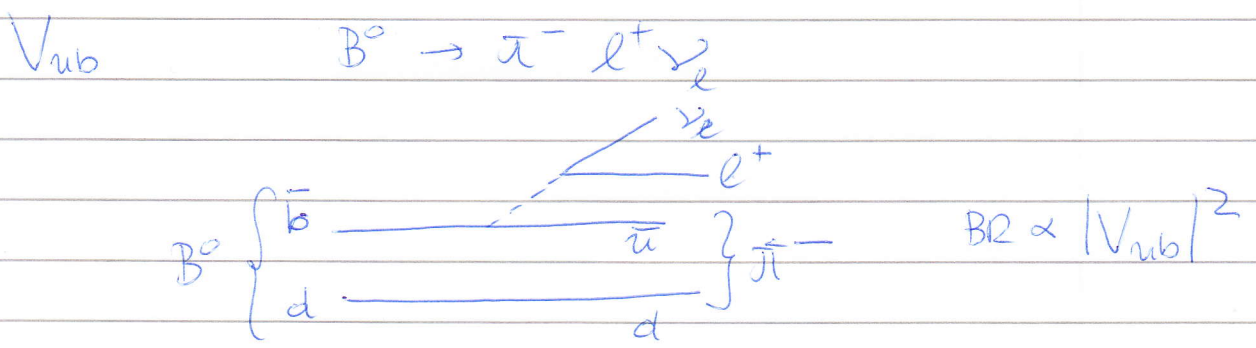 V_ub B⁰ → π⁻ ℓ⁺ ν_ℓ
ν_ℓ
ℓ⁺
B⁰ { b̄ ū } π⁻ BR ∝ |V_ub|²
d d